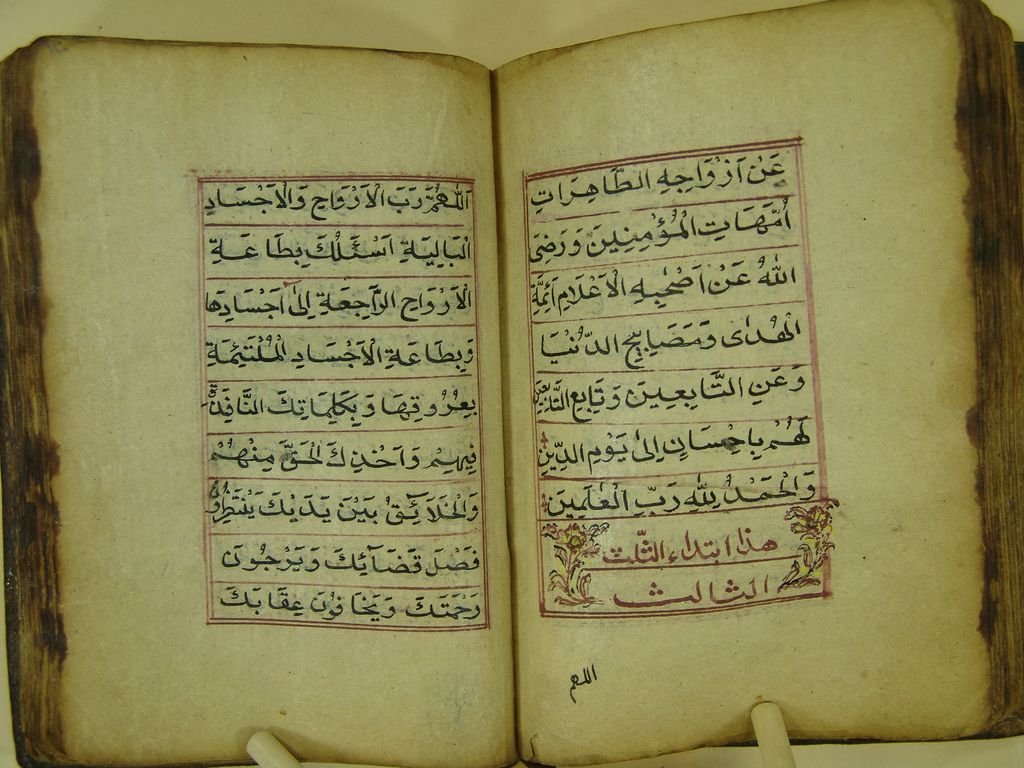 عَنْ اَزْوَاجِهِ الطَّاهِرَاتِ
اُمَّهَاتِ الْمُؤْمِنِينَ وَرَضِىَ
اللّٰهُ عَنْ اَصْحٰبِهِ الْاَعْلَامِ اَئِمَّةِ
الْهُدٰى وَمَصَابِيْحِ الدُّنْيَا
وَعَنِ التَّابِعِينَ وَتَابِعِ التَّابِعِينَ
لَهُمْ بِاِحْسَانٍ اِلٰى يَوْمِ الدِّيْنِ
وَالْحَمْدُ لِلّٰهِ رَبِّ الْعٰلَمِيْنَ
هذا ابتداء الثّلث
الثالث
اللهم
اَللّٰهُمَّ رَبَّ الْاَرْوَاحِ وَالْاَجْسَادِ
الْبَالِيَةِ اَسْئَلُكَ بِطَاعَةِ
الْاَرْوَاحِ الرَّاجِعَةِ اِلٰى اَجْسَادِهَا
وَبِطَاعَةِ الْاَجْسَادِ الْمُلْتَئِمَةِ
بِعُرُوقِهَا وَبِكَلِمَاتِكَ النَّافِذَةِ
فِيهِمْ وَاَخْذِكَ الْحَقَّ مِنْهُمْ
وَالْخَلَائِقُ بَيْنَ يَدَيْكَ يَنْتَظِرُونَ
فَصْلَ قَضَآئِكَ وَيَرْجُونَ
رَحْمَتَكَ وَيَخَافُونَ عِقَابَكَ